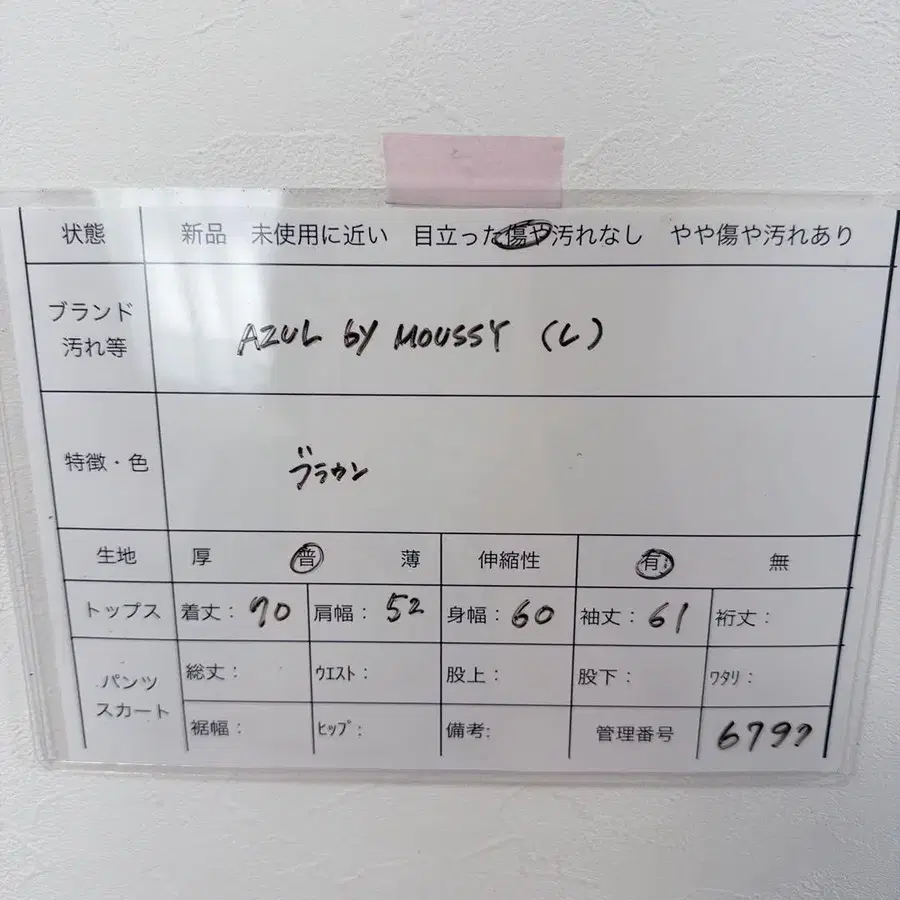 状態 新品 未使用に近い 目立った傷や汚れなし やや傷や汚れあり
ブランド
汚れ等
AZUL BY MOUSSY (L)
特徴・色 ブラウン
生地 厚 普 薄 伸縮性 有 無
トップス 着丈: 70 肩幅: 52 身幅: 60 袖丈: 61 裄丈:
パンツ
スカート
総丈: ウエスト: 股上: 股下: ワタリ:
裾幅: ヒップ: 備考: 管理番号 6797